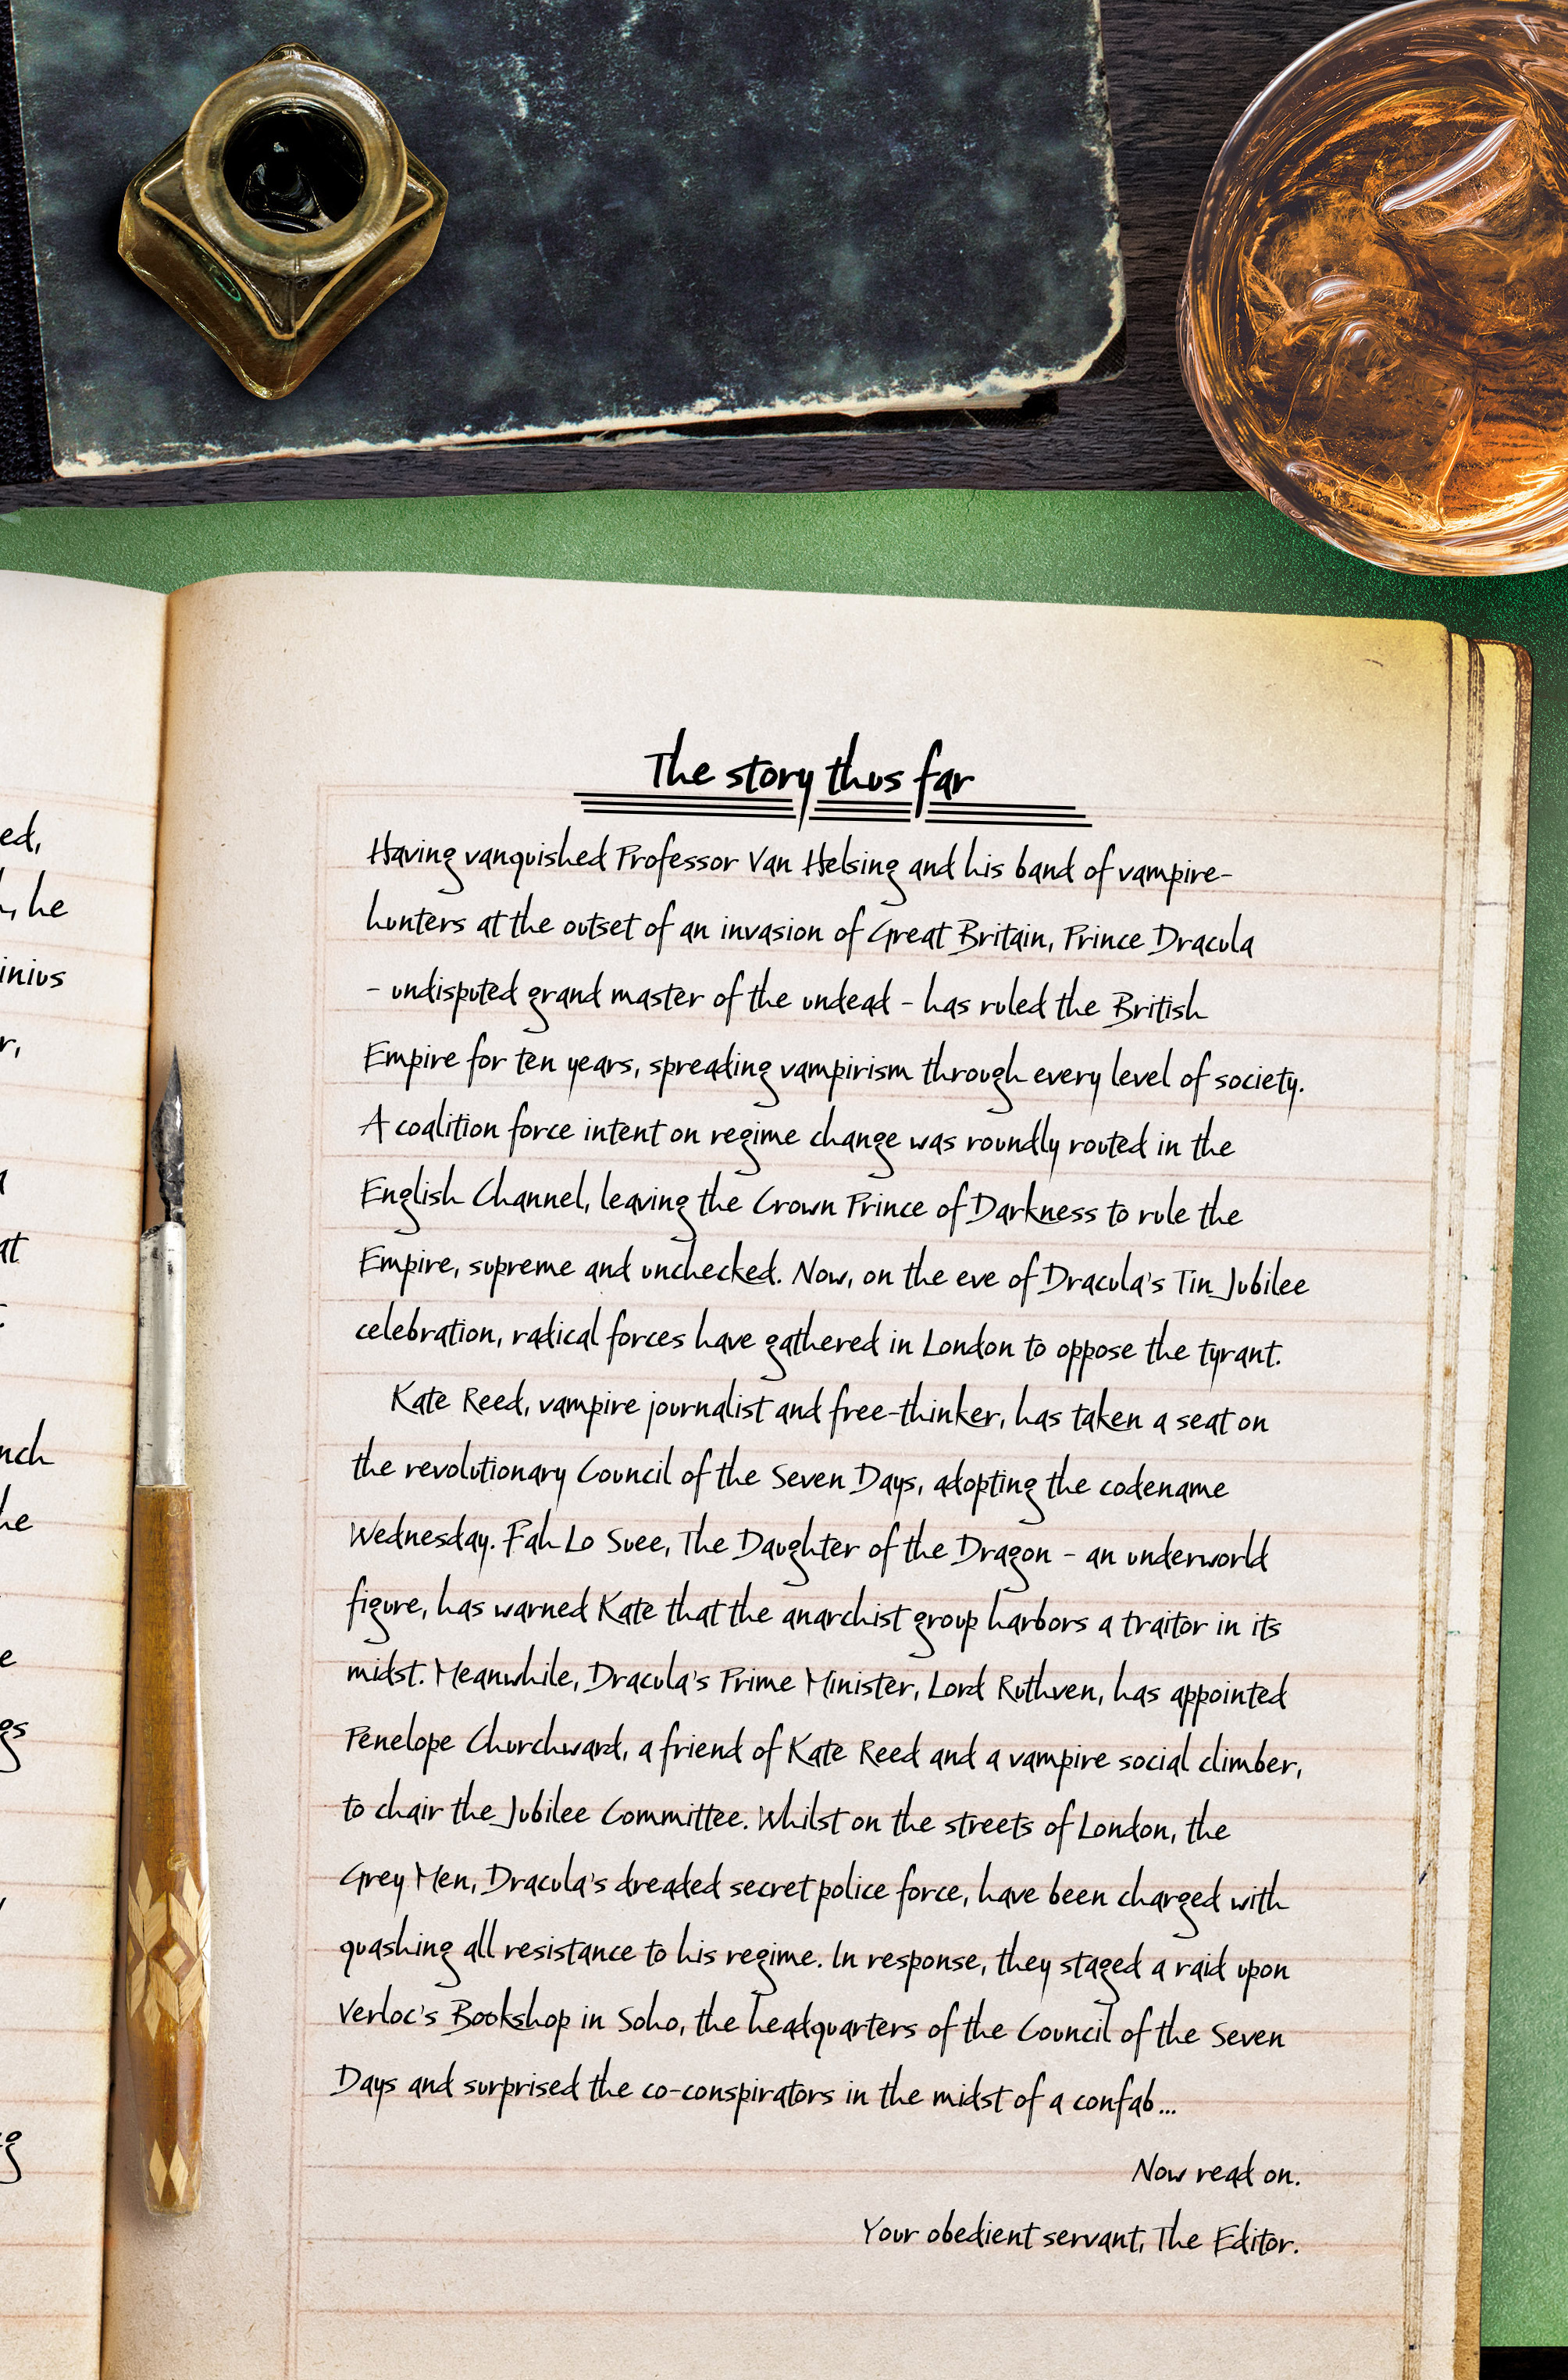 The story thus far
Having vanquished Professor Van Helsing and his band of vampire-
hunters at the outset of an invasion of Great Britain, Prince Dracula
- undisputed grand master of the undead - has ruled the British
Empire for ten years, spreading vampirism through every level of society.
A coalition force intent on regime change was roundly routed in the
English Channel, leaving the Crown Prince of Darkness to rule the
Empire, supreme and unchecked. Now, on the eve of Dracula's Tin Jubilee
celebration, radical forces have gathered in London to oppose the tyrant.
Kate Reed, vampire journalist and free-thinker, has taken a seat on
the revolutionary Council of the Seven Days, adopting the codename
Wednesday. Fah Lo Suee, The Daughter of the Dragon - an underworld
figure, has warned Kate that the anarchist group harbors a traitor in its
midst. Meanwhile, Dracula's Prime Minister, Lord Ruthven, has appointed
Penelope Churchward, a friend of Kate Reed and a vampire social climber,
to chair the Jubilee Committee. Whilst on the streets of London, the
Grey Men, Dracula's dreaded secret police force, have been charged with
quashing all resistance to his regime. In response, they staged a raid upon
Verloc's Bookshop in Soho, the headquarters of the Council of the Seven
Days and surprised the co-conspirators in the midst of a confab...
Now read on.
Your obedient servant, The Editor.